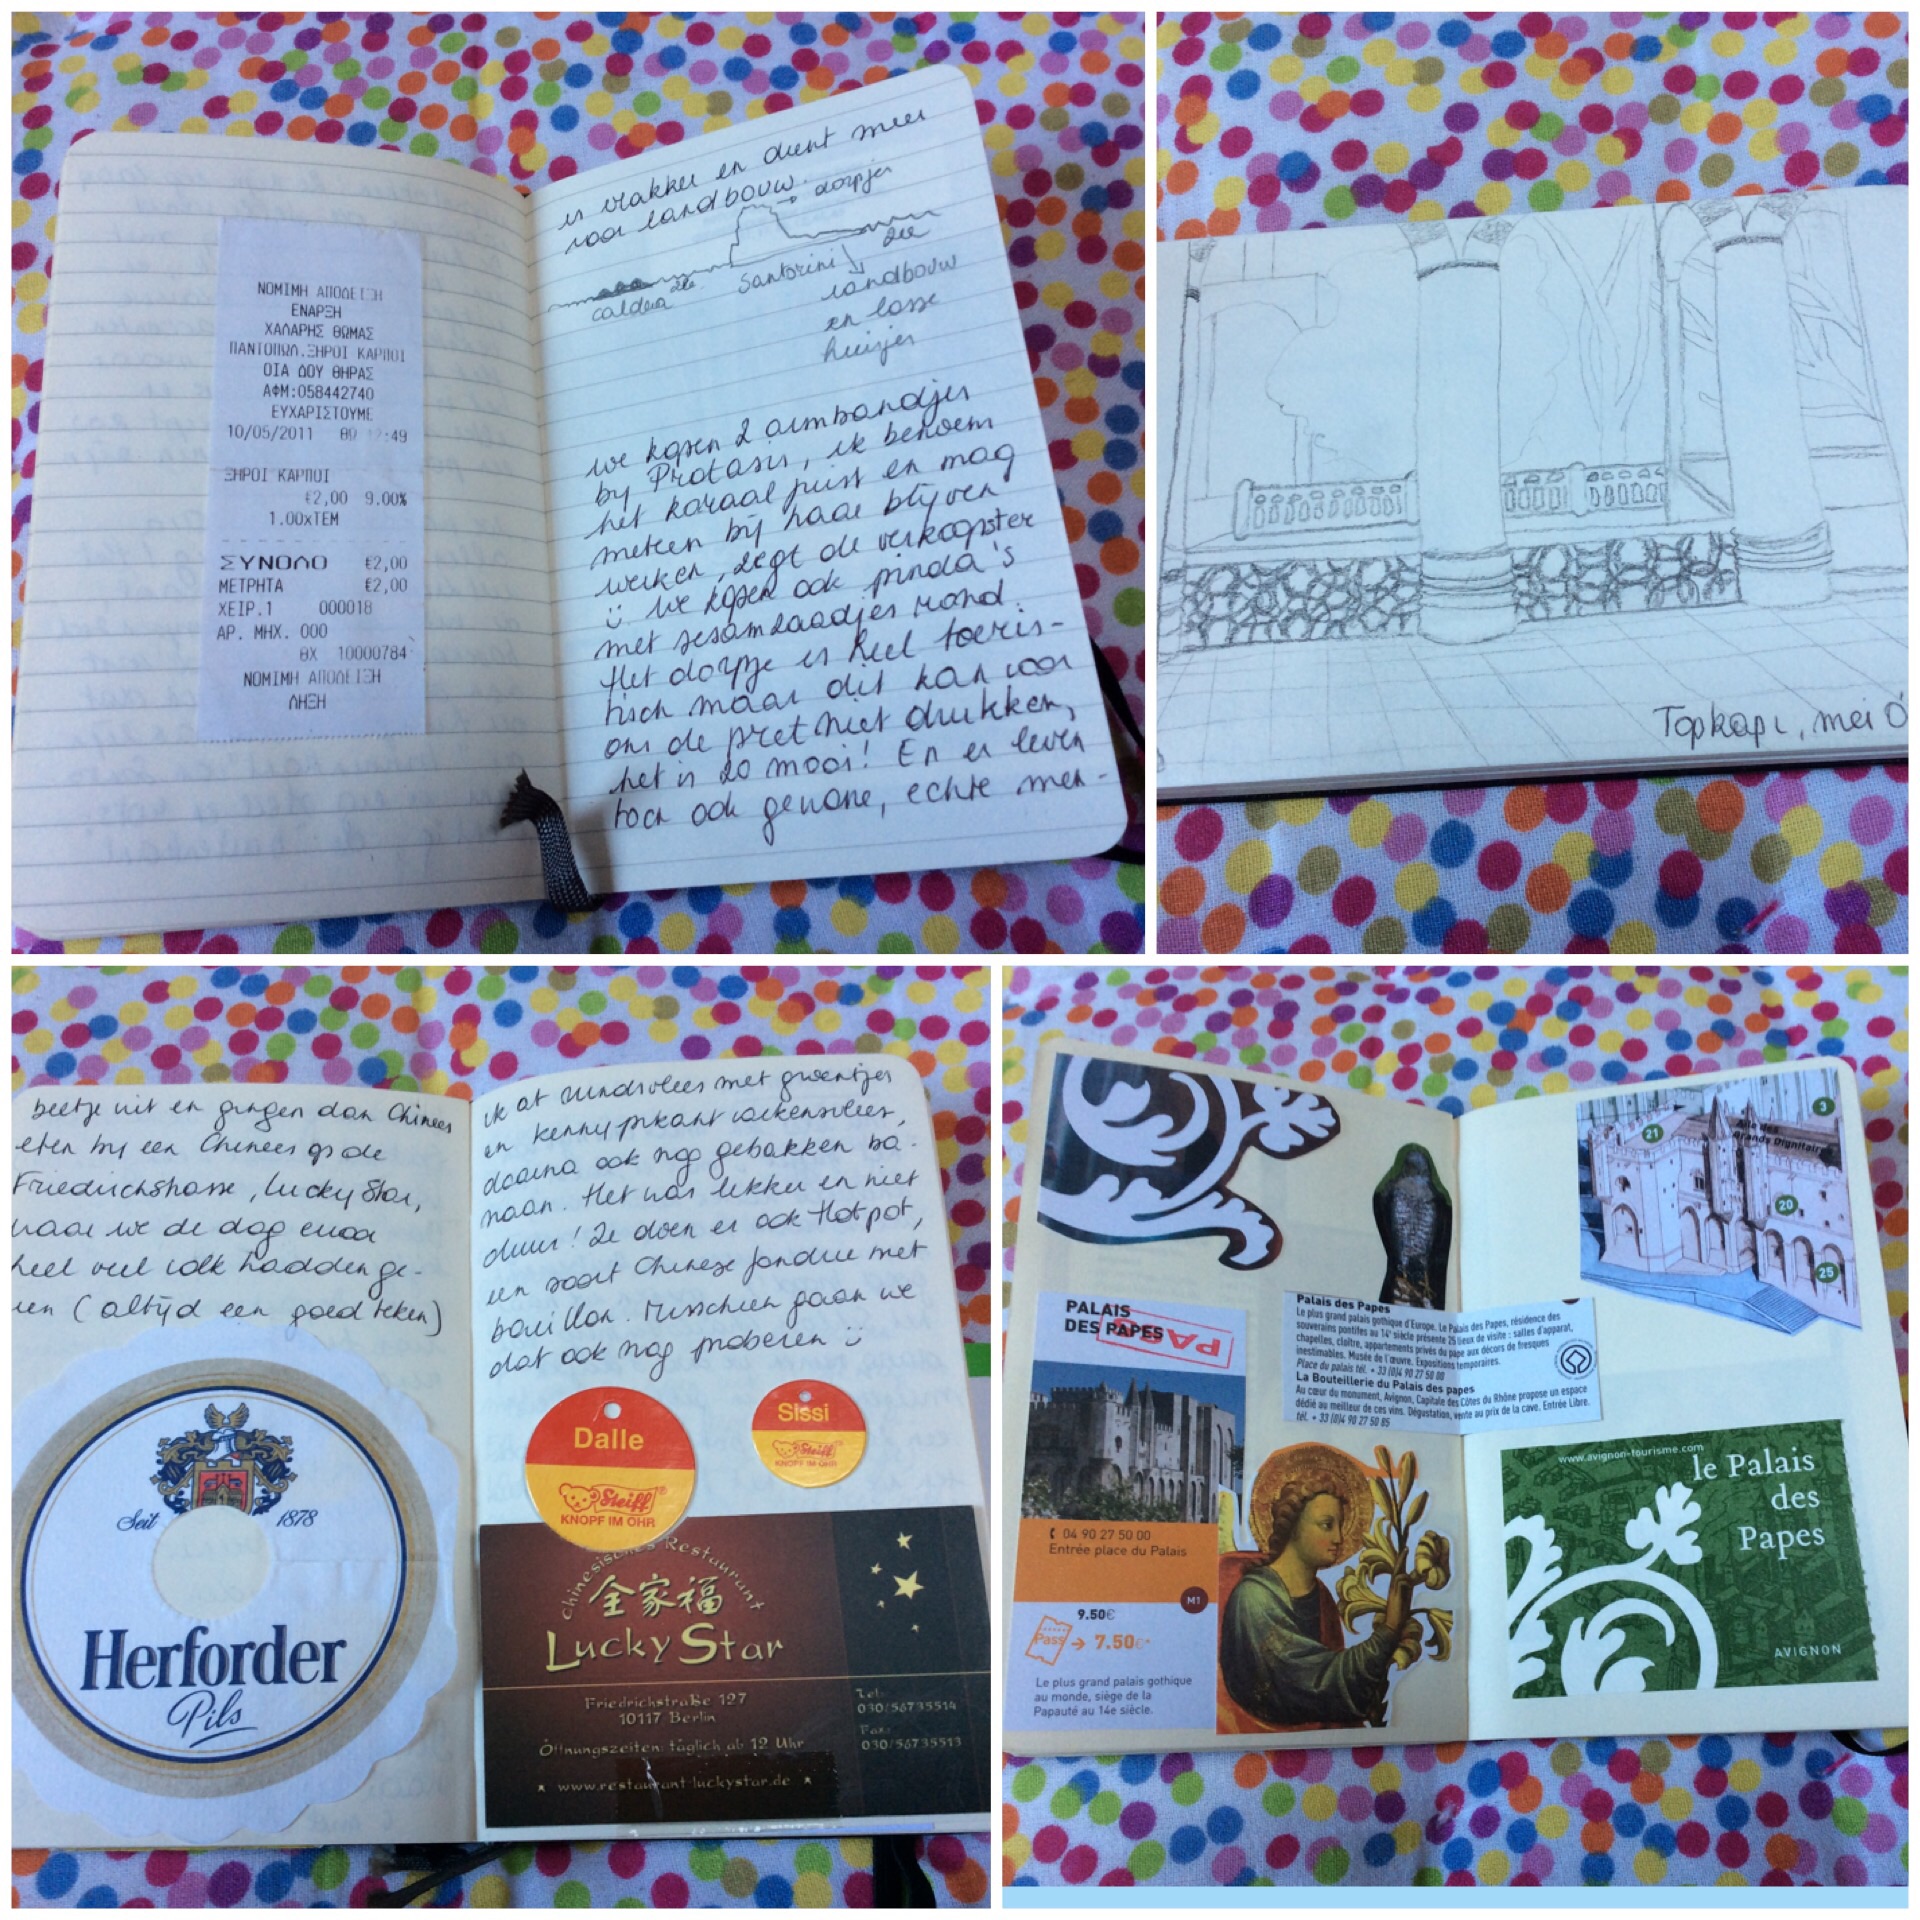 ΝΟΜΙΜΗ ΑΠΟΔΕΙΞΗ
ΕΝΑΡΞΗ
ΧΑΛΑΡΗΣ ΘΩΜΑΣ
ΠΑΝΤΟΠΩΛ.ΞΗΡΟΙ ΚΑΡΠΟΙ
ΟΙΑ ΔΟΥ ΘΗΡΑΣ
ΑΦΜ:058442740
ΕΥΧΑΡΙΣΤΟΥΜΕ
10/05/2011 :49
ΞΗΡΟΙ ΚΑΡΠΟΙ
€2,00 9.00%
1.00xΤΕΜ
ΣΥΝΟΛΟ €2,00
ΜΕΤΡΗΤΑ €2,00
ΧΕΙΡ.1 000018
ΑΡ. ΜΗΧ. 000
ΘΧ 10000784
ΝΟΜΙΜΗ ΑΠΟΔΕΙΞΗ
ΛΗΞΗ
is vlakker en dient meer
voor landbouw.
dorpjes
zee
caldera zee Santorini
landbouw
en losse
huisjes
we kopen 2 armbandjes
by Protasis, ik benoem
het koraal juist en mag
meteen bij haar blijven
werken, zegt de verkoopster
☺ We kopen ook pinda's
met sesamzaadjes rond.
Het dorpje is heel toeris-
tisch maar dit kan voor
ons de pret niet drukken,
het is zo mooi! En er leven
toch ook gewone, echte men-
Topkapi, mei 0
beetje uit en gingen dan Chinees
eten by een Chinees op de
Friedrichstrasse, Lucky Star,
waar we de dag ervoor
heel veel volk hadden ge-
zien (altijd een goed teken)
Seit 1878
Herforder
Pils
ik at rundsvlees met groentjes
en Kenny pikant varkensvlees,
daarna ook nog gebakken ba-
naan. Het was lekker en niet
duur! Ze doen er ook Hotpot,
een soort Chinese fondue met
bouillon. Misschien gaan we
dat ook nog proberen ☺
Dalle
Steiff®
KNOPF IM OHR
Sissi
Steiff®
KNOPF IM OHR
Chinesisches Restaurant
全家福
Lucky Star
Friedrichstraße 127
10117 Berlin
Öffnungszeiten: täglich ab 12 Uhr
★ www.restaurant-luckystar.de ★
Tel:
030/56735514
Fax:
030/56735513
PALAIS
DES PAPES
PASS
04 90 27 50 00
Entrée place du Palais
M1
9.50€
Pass → 7.50€*
Le plus grand palais gothique
au monde, siège de la
Papauté au 14e siècle.
Palais des Papes
Le plus grand palais gothique d'Europe. Le Palais des Papes, résidence des
souverains pontifes au 14e siècle présente 25 lieux de visite : salles d'apparat,
chapelles, cloître, appartements privés du pape aux décors de fresques
inestimables. Musée de l'œuvre. Expositions temporaires.
Place du palais tél. + 33 (0)4 90 27 50 00
La Bouteillerie du Palais des papes
Au cœur du monument, Avignon, Capitale des Côtes du Rhône propose un espace
dédié au meilleur de ces vins. Dégustation, vente au prix de la cave. Entrée Libre.
tél. + 33 (0)4 90 27 50 85
3
21
Aile des
Grands Dignitaires
20
25
www.avignon-tourisme.com
le Palais
des
Papes
AVIGNON